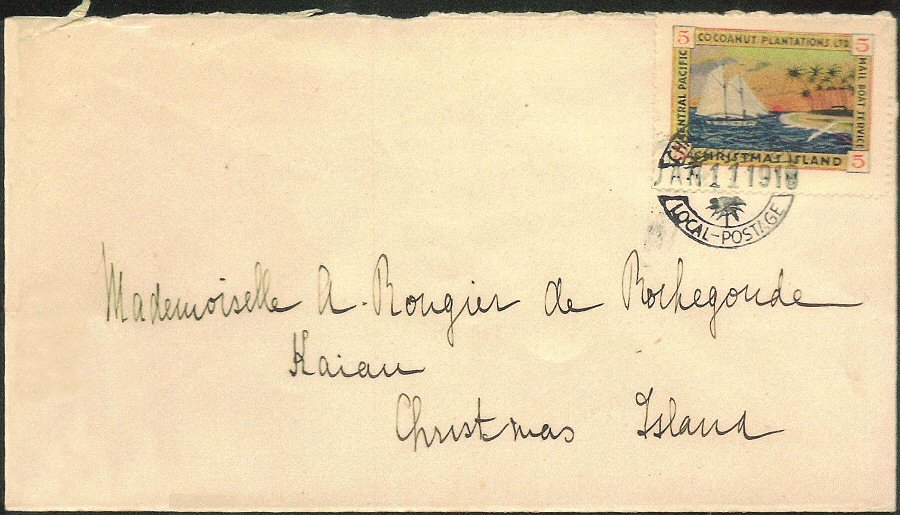 5 COCOANUT PLANTATIONS LTD. 5
CENTRAL PACIFIC
MAIL BOAT SERVICE
CHRISTMAS ISLAND 5
JAN 11 1918
LOCAL-POSTAGE
Mademoiselle A. Rougier de Rochegonde
Kaiau
Christmas Island